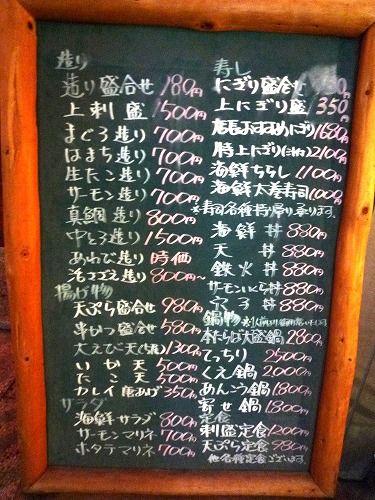 造り
造り盛合せ 180円
上刺盛 1500円
まぐろ造り 700円
はまち造り 700円
生たこ造り 700円
サーモン造り 700円
真鯛造り 800円
中とろ造り 1500円
あわび造り 時価
活さざえ造り 800円~
揚げ物
天ぷら盛合せ 980円
串かつ盛合せ 580円
大えび天(5尾) 1300円
いか天 500円
たこ天 500円
カレイ唐あげ 350円
サラダ
海鮮サラダ 800円
サーモンマリネ 700円
ホタテマリネ 700円
寿し
にぎり盛合せ
上にぎり盛 350円
店長おすすめにぎり 1680円
特上にぎり 2100円
海鮮ちらし 1100円
海鮮太巻寿司 1000円
※寿司各種持ち帰り承ります。
海鮮丼 880円
天丼 880円
鉄火丼 880円
サーモンいくら丼 880円
穴子丼 880円
鍋物
本たらば大盛鍋 2800円
てっちり 2500円
くえ鍋 2000円
あんこう鍋 1800円
寄せ鍋 1800円
定食
刺盛定食 1200円
天ぷら定食 980円
他各種定食ございます。